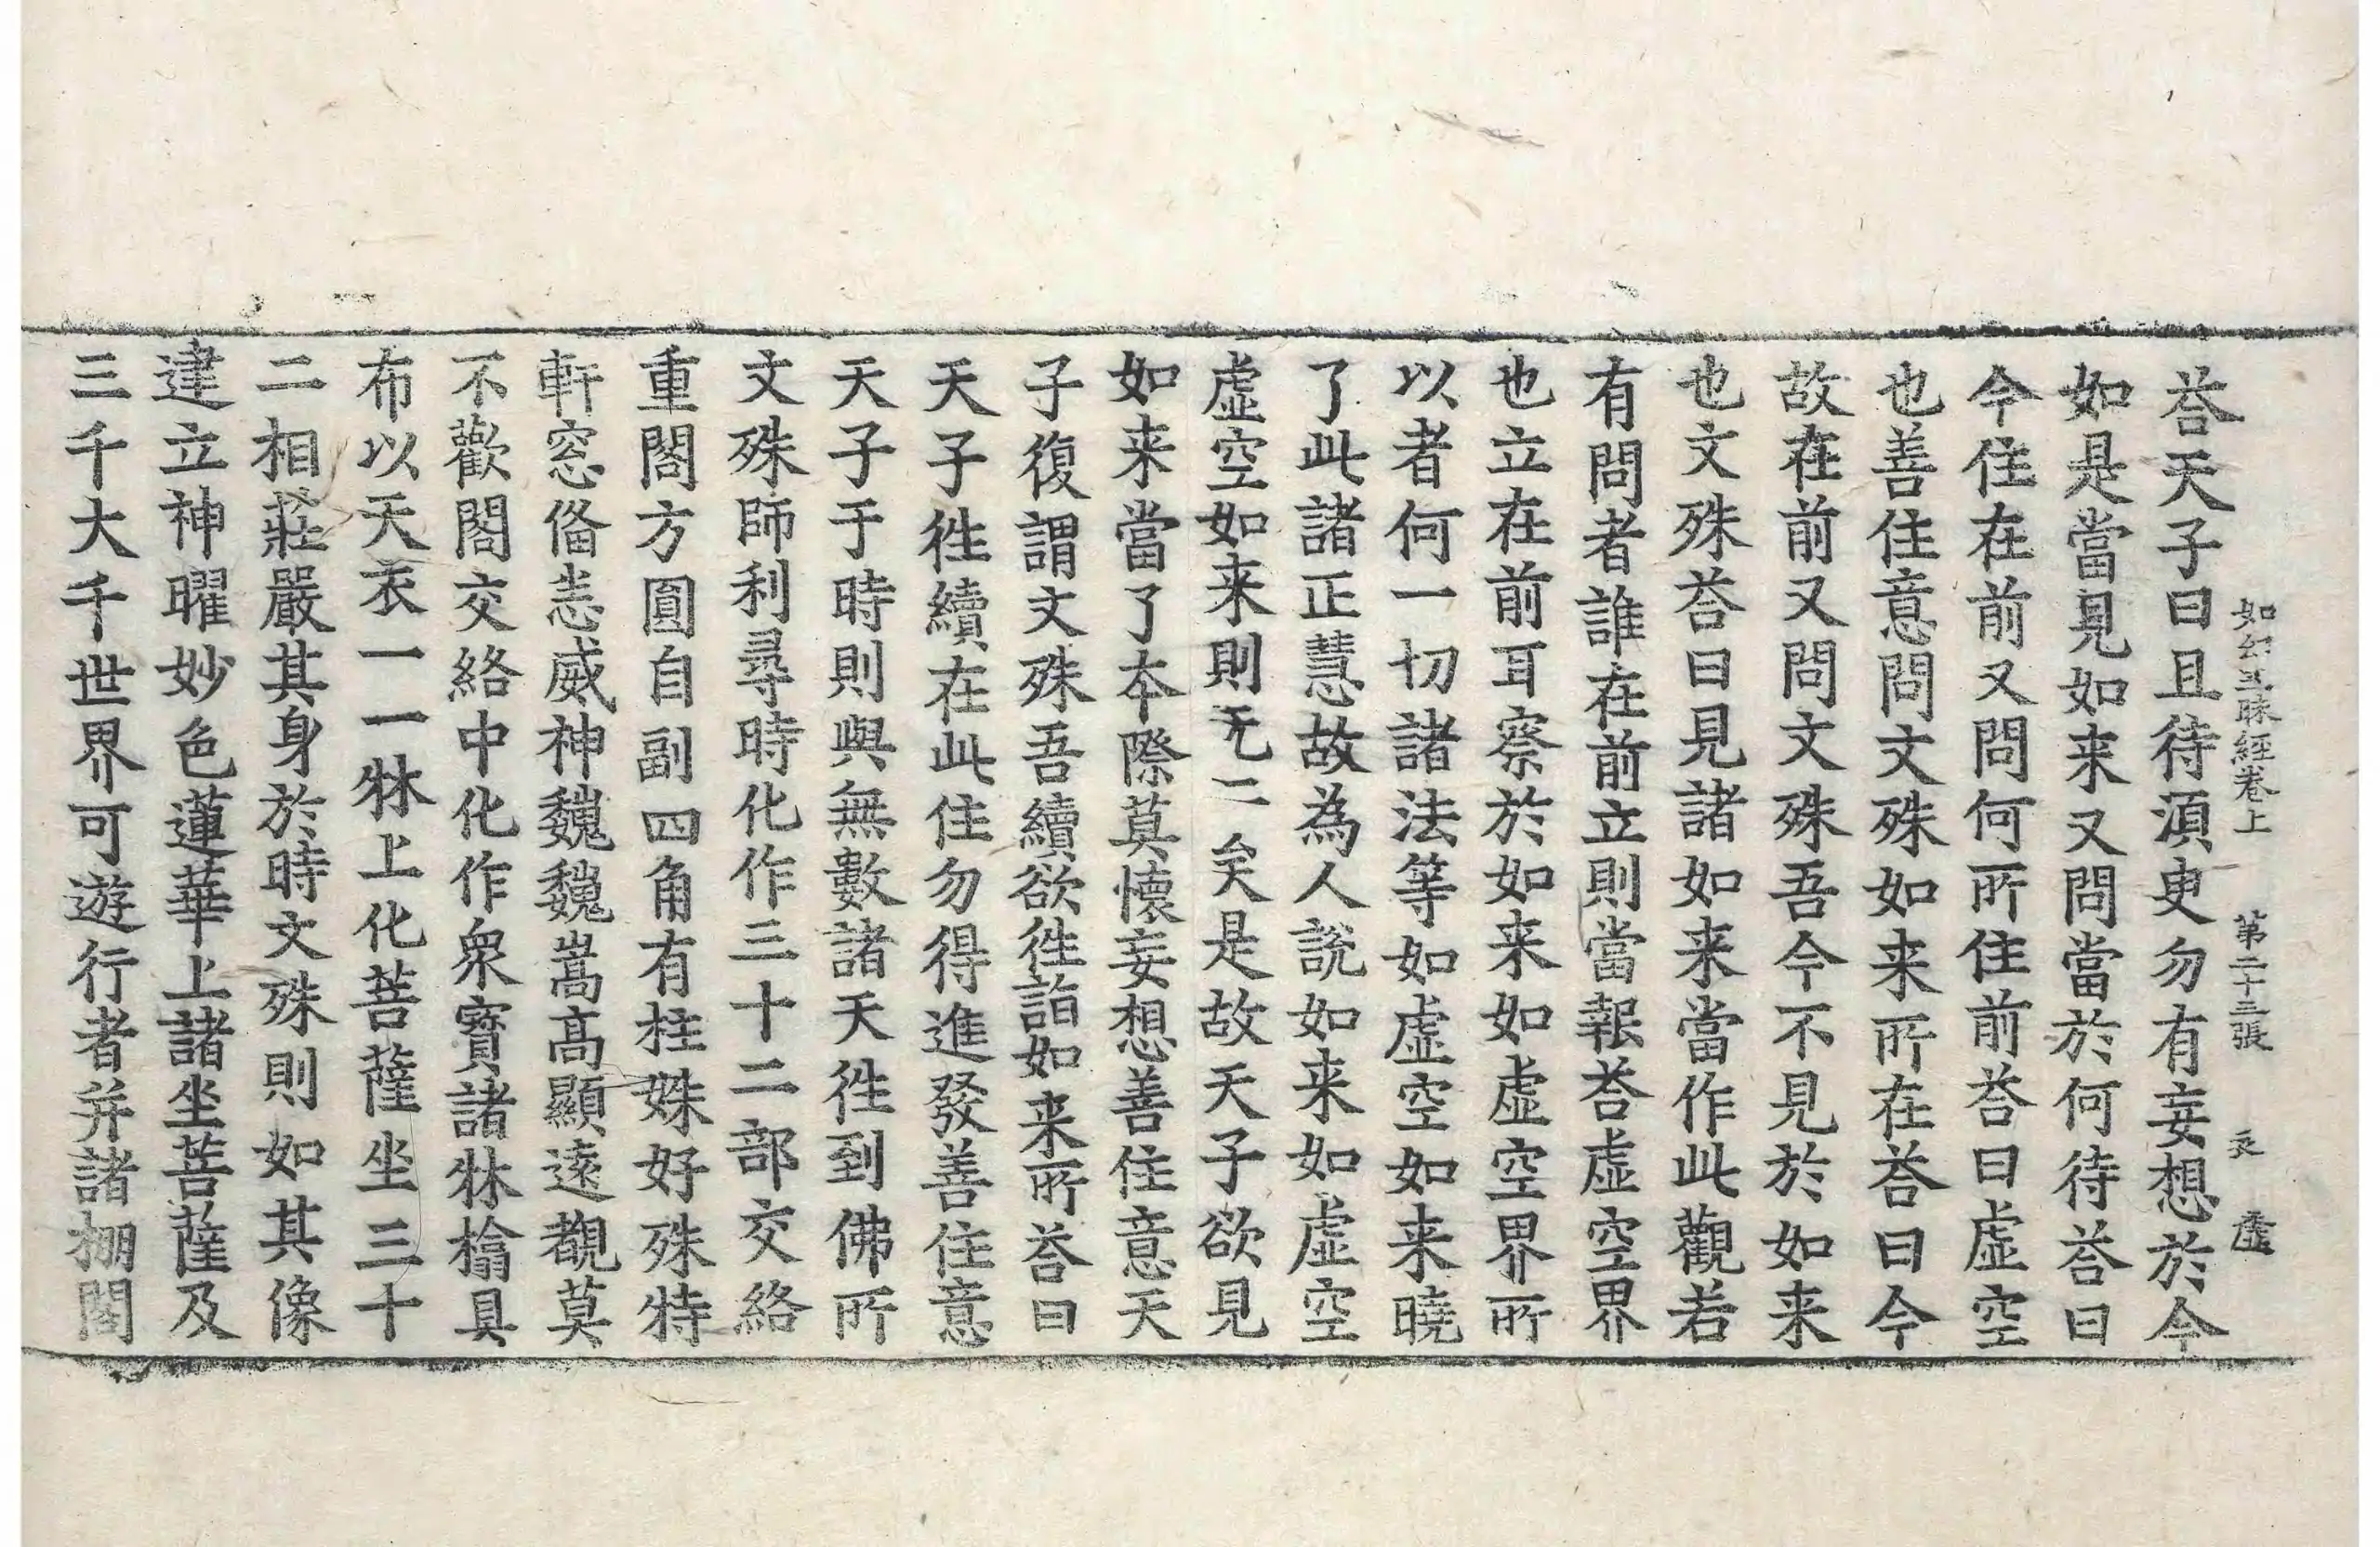 如幻三昧經卷上　第二十三張　虛
荅天子曰且待湏臾勿有妄想於今
如是當見如来又問當於何待荅曰
今住在前又問何所住前荅曰虛空
也善住意問文殊如来所在荅曰今
故在前又問文殊吾今不見於如来
也文殊荅曰見諸如来當作此觀若
有問者誰在前立則當報荅虛空界
也立在前耳察於如来如虛空界所
以者何一切諸法等如虛空如来曉
了此諸正慧故為人說如来如虛空
虛空如来則无二矣是故天子欲見
如来當了本際莫懷妄想善住意天
子復謂文殊吾續欲徃詣如来所荅曰
天子徃續在此住勿得進發善住意
天子于時則與無數諸天徃到佛所
文殊師利尋時化作三十二部交絡
重閣方圓自副四角有柱姝好殊特
軒窓俻恙威神巍巍嵩高顯遠覩莫
不歡閣交絡中化作衆寶諸牀榻具
布以天衣一一牀上化菩薩坐三十
二相莊嚴其身於時文殊則如其像
建立神曜妙色蓮華上諸坐菩薩及
三千大千世界可遊行者并諸棚閣